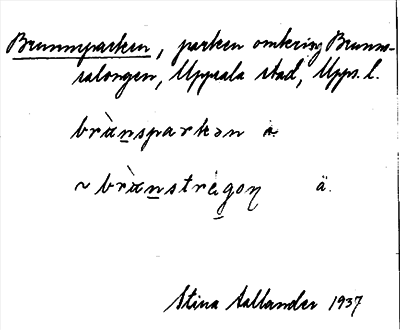 Brunnsparken, parken omkring Brunns-
salongen, Uppsala stad, Upps. l.
brùnsparkən ä.
~ brùnstrègoŋ ä.
Stina Hallander 1937